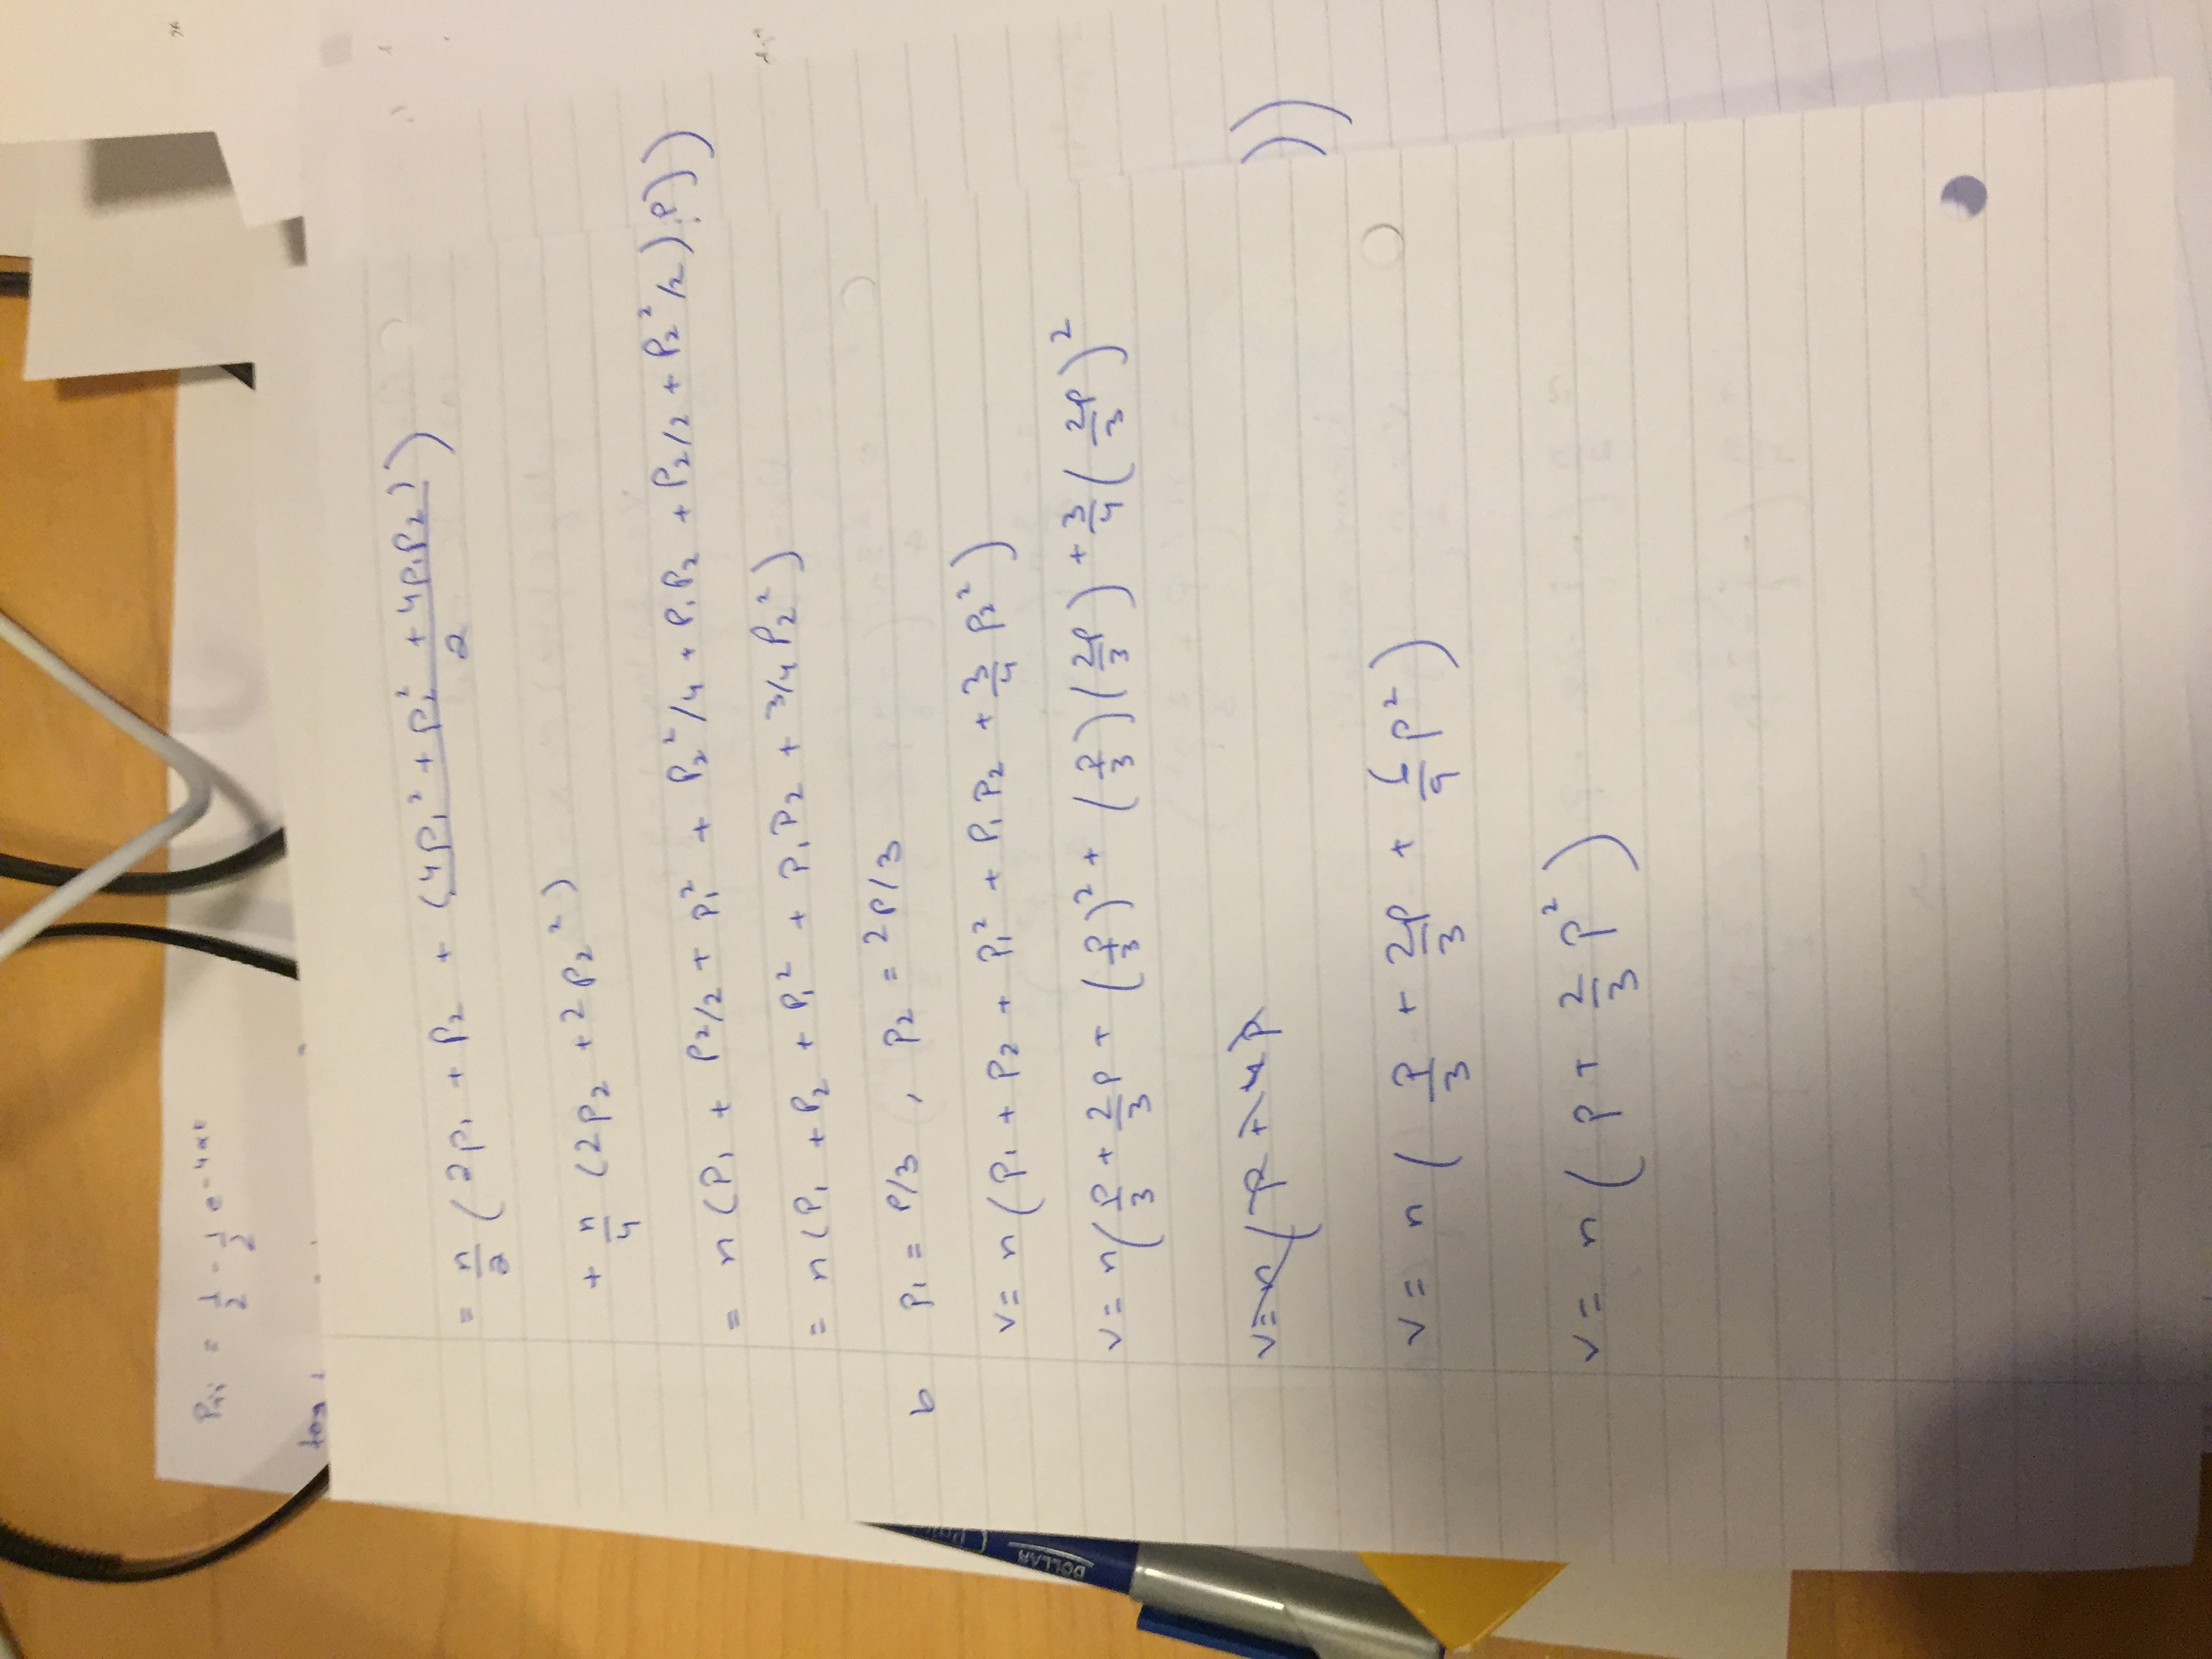 Pii = 1/2 - 1/2 e^-4αt
= n/2 (2p₁ + p₂ + (4p₁² + p₂² + 4p₁p₂)/2)
+ n/4 (2p₂ + 2p₂²)
= n(p₁ + p₂/2 + p₁² + p₂²/4 + p₁p₂ + p₂/2 + p₂²/2)
= n(p₁ + p₂ + p₁² + p₁p₂ + 3/4 p₂²)
b p₁ = p/3 , p₂ = 2p/3
v = n(p₁ + p₂ + p₁² + p₁p₂ + 3/4 p₂²)
v = n(p/3 + 2/3 p + (p/3)² + (p/3)(2p/3) + 3/4 (2p/3)²
v = n(p + 4p
))
v = n(p/3 + 2p/3 + 6/9 p²)
v = n(p + 2/3 p²)
DOLLAR